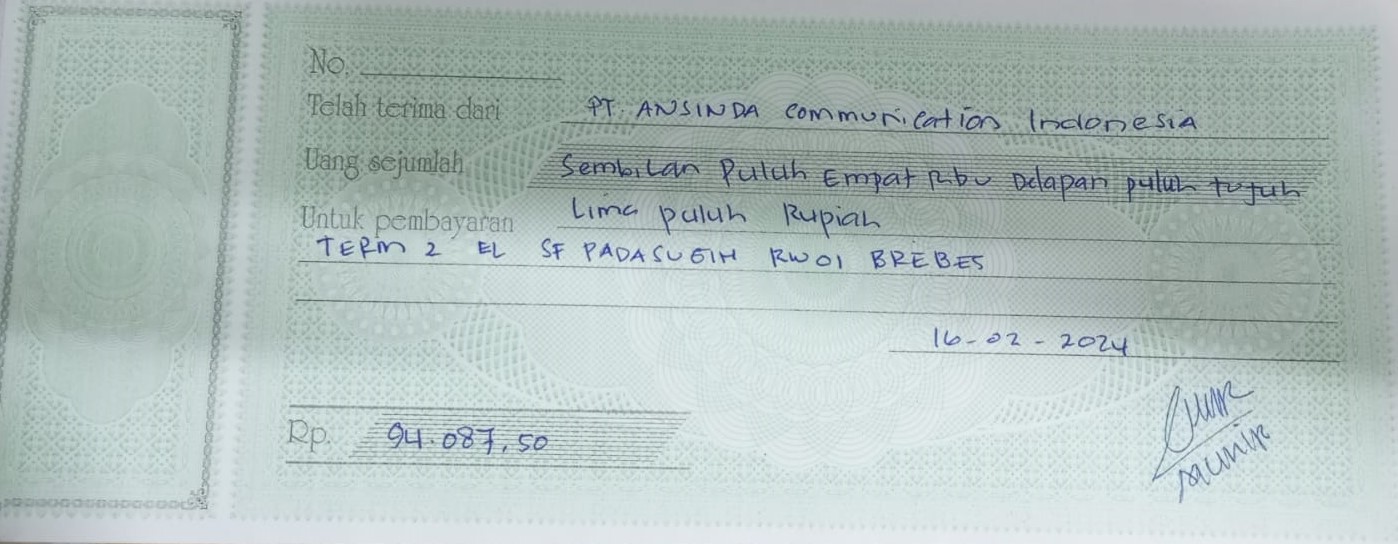 No.
Telah terima dari PT. ANSINDA Communication Indonesia
Uang sejumlah Sembilan Puluh Empat Ribu Delapan puluh tujuh
Lima puluh Rupiah
Untuk pembayaran
TERM 2 EL SF PADASUGIH RW01 BREBES
16-02-2024
Rp. 94.087,50
Munir